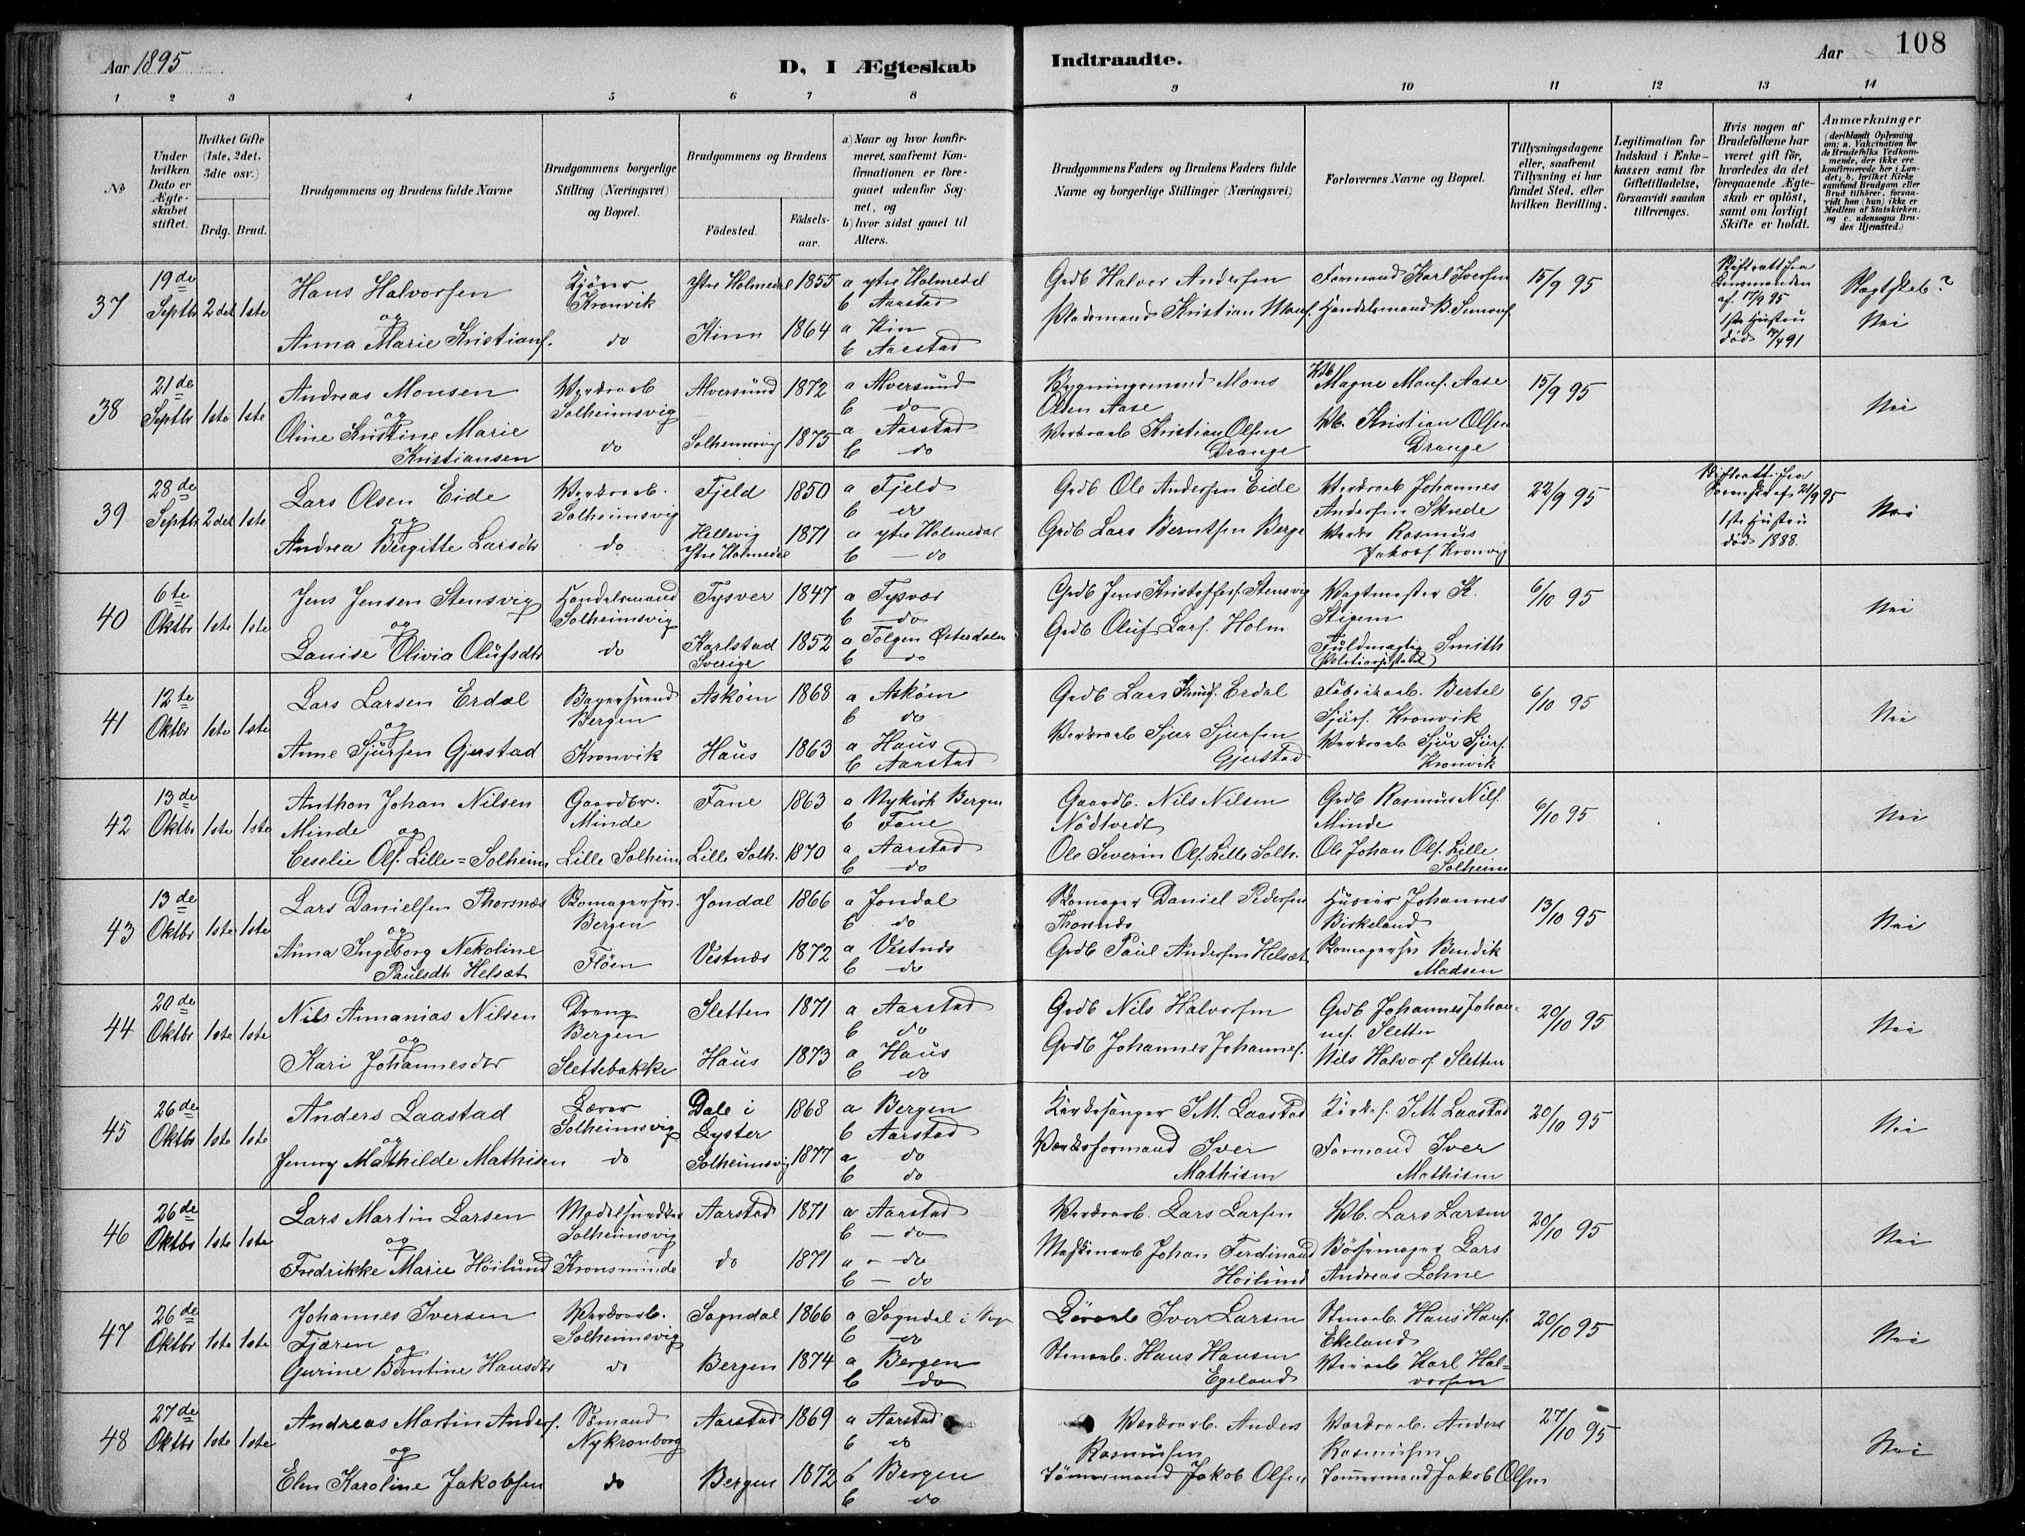 Aar 1895
D, I Ægteskab Indtraadte.
Aar 108
1 2 3 4 5 6 7 8 9 10 11 12 13 14
No
Under hvilken Dato er Ægteskabet stiftet.
Hvilket Gifte (1ste, 2det, 3die osv.)
Brdg. Brud.
Brudgommens og Brudens fulde Navne
Brudgommens borgerlige Stilling (Næringsvei) og Bopæl.
Brudgommens og Brudens
Fødested. Fødselsaar.
a) Naar og hvor konfirmeret, saafremt Konfirmationen er foregaaet udenfor Sognet, og
b) hvor sidst gaaet til Alters.
Brudgommens Faders og Brudens Faders fulde Navne og borgerlige Stillinger (Næringsvei)
Forlovernes Navne og Bopæl.
Tillysningsdagene eller, saafremt Tillysning ei har fundet Sted, efter hvilken Bevilling.
Legitimation for Indskud i Enkekassen samt for Giftetilladelse, forsaavidt saadan tiltrænges.
Hvis nogen af Brudefolkene har været gift før, hvorledes da det foregaaende Ægteskab er opløst, samt om lovligt Skifte er holdt.
Anmærkninger
(deriblandt Oplysning om: a. Vakcination for de Brudefolks Vedkommende, der ikke ere konfirmerede her i Landet, b. hvilket Kirkesamfund Brudgom eller Brud tilhører, forsaavidt han (hun) ikke er Medlem af Statskirken, og c. udensogns Brudes Hjemsted.)
37 19de Septbr 2det 1ste Hans Halvorsen Kjører Kronvik Ytre Holmedal 1855 a ytre Holmedal b Aarstad Grdb Halvor Andersen Formand Karl Iversen 15/9 95 Skifteatt fra Lensmanden af 17/9 95
og
Anna Marie Kristians. do Kinn 1864 a Kin b Aarstad Pladsmand Kristian Mons. Handelsmand B. 1ste Hustru død 14/4 91 Nei
38 21de Septbr 1ste 1ste Andreas Monsen Værksarb Solheimsvig Alversund 1872 a Alversund b do Bygningsmand Mons Olsen Aase Magne Mons. Aase 15/9 95
og
Oline Kristine Marie Kristiansen do Solheimsvig 1875 a Aarstad b do Værksarb Kristian Olsen Drange Vb. Kristian Olsen Drange Nei
39 28de Septbr 2det 1ste Lars Olsen Eide Værksarb. Solheimsvig Fjeld 1850 a Fjeld b do Grdb Ole Andersen Eide Værksarb Johannes Andersen Skrede 22/9 95
og
Andrea Bergitte Larsdtr do Hellevig Ytre Holmedal 1871 a ytre Holmedal b do Grdb Lars Berntsen Berge Rasmus Jakobs. Kronvig 1ste Hustru død 1888. Nei
40 6te Oktbr 1ste 1ste Jens Jensen Stensvig Handelsmand Solheimsvig Tysvær 1847 a Tysvær b do Grdb Jens Kristoffers. Stensvig Vagtmester K. Stigem 6/10 95
og
Louise Olivia Olufsdtr do Karlstad Sverige 1852 a Tolgen Østerdalen b do Grdb Oluf Lars. Holm Fuldmægtig Smith Nei
41 12te Oktbr 1ste 1ste Lars Larsen Erdal Bagersvend Bergen Askøen 1868 a Askøen b do Grdb Lars Knuds. Erdal Fabrikarb. Bertel Sjurs. Kronvik 6/10 95
og
Anne Sjursen Gjerstad Kronvik Haus 1863 a Haus b Aarstad Værksarb Sjur Sjursen Gjerstad Værksarb Sjur Sjurs. Kronvik Nei
42 13de Oktbr 1ste 1ste Anthon Johan Nilsen Minde Gaardbr. Minde Fane 1863 a Nykirk Bergen b Fane Gaardb. Nils Nilsen Nødtvedt Grdb Rasmus Nils. Minde 6/10 95
og
Ceselie Ols. Lille=Solheim Lille Solheim Lille Solh. 1870 a Aarstad b do Ole Severin Ols. Lille Solh. Ole Johan Ols. Lille Solheim Nei
43 13de Oktbr 1ste 1ste Lars Danielsen Thorsnes Skomagersv. Bergen Jondal 1866 a Jondal b do Skomager Daniel Pedersen Thorsnæs Husier Johannes Birkeland 13/10 95
og
Anna Ingeborg Nekoline Paulsdtr Helsæt Fløen Vestnæs 1872 a Vestnæs b do Grdb Paul Andersen Helsæt Skomagersv Bendik Madsen Nei
44 20de Oktbr 1ste 1ste Nils Annanias Nilsen Dreng Bergen Sletten 1871 a Aarstad b do Grdb Nils Halvorsen Grdb Johannes Johannes. Sletten 20/10 95
og
Kari Johannesdtr Slettebakke Haus 1873 a Haus b do Grdb Johannes Johannes. Nils Halvors. Sletten Nei
45 26de Oktbr 1ste 1ste Anders Laastad Lærer Solheimsvig Dale i Lyster 1868 a Bergen b Aarstad Kirkesanger I M. Laastad Kirkes. I M Laastad 20/10 95
og
Jenny Mathilde Mathisen do Solheimsvig 1877 a do b do Værksformand Iver Mathisen Formand Iver Mathisen Nei
46 26de Oktbr 1ste 1ste Lars Martin Larsen Modelsnedker Solheimsvig Aarstad 1871 a Aarstad b do Værksarb. Lars Larsen Vb. Lars Larsen 20/10 95
og
Fredrikke Marie Høilund Kronsminde do 1871 a do b do Maskinarb Johan Ferdinand Høilund Børsemager Lars Andreas Lohne Nei
47 26de Oktbr 1ste 1ste Johannes Iversen Fjæren Værksarb. Solheimsvig Sogndal 1866 a Sogndal i Sogn b do Iver Larsen Stenarb. Hans Hans. Ekeland 20/10 95
og
Gurine Berntine Hansdtr do Bergen 1874 a Bergen b do Stenarb. Hans Hansen Egeland Karl Halvorsen Nei
48 27de Oktbr 1ste 1ste Andreas Martin Anders. Sømand Nykronborg Aarstad 1869 a Aarstad b do Værksarb. Anders Rasmussen Værksarb. Anders Rasmussen 27/10 95
og
Elen Karoline Jakobsen do Bergen 1872 a Bergen b do Tømmermand Jakob Olsen Tømmermand Jakob Olsen Nei